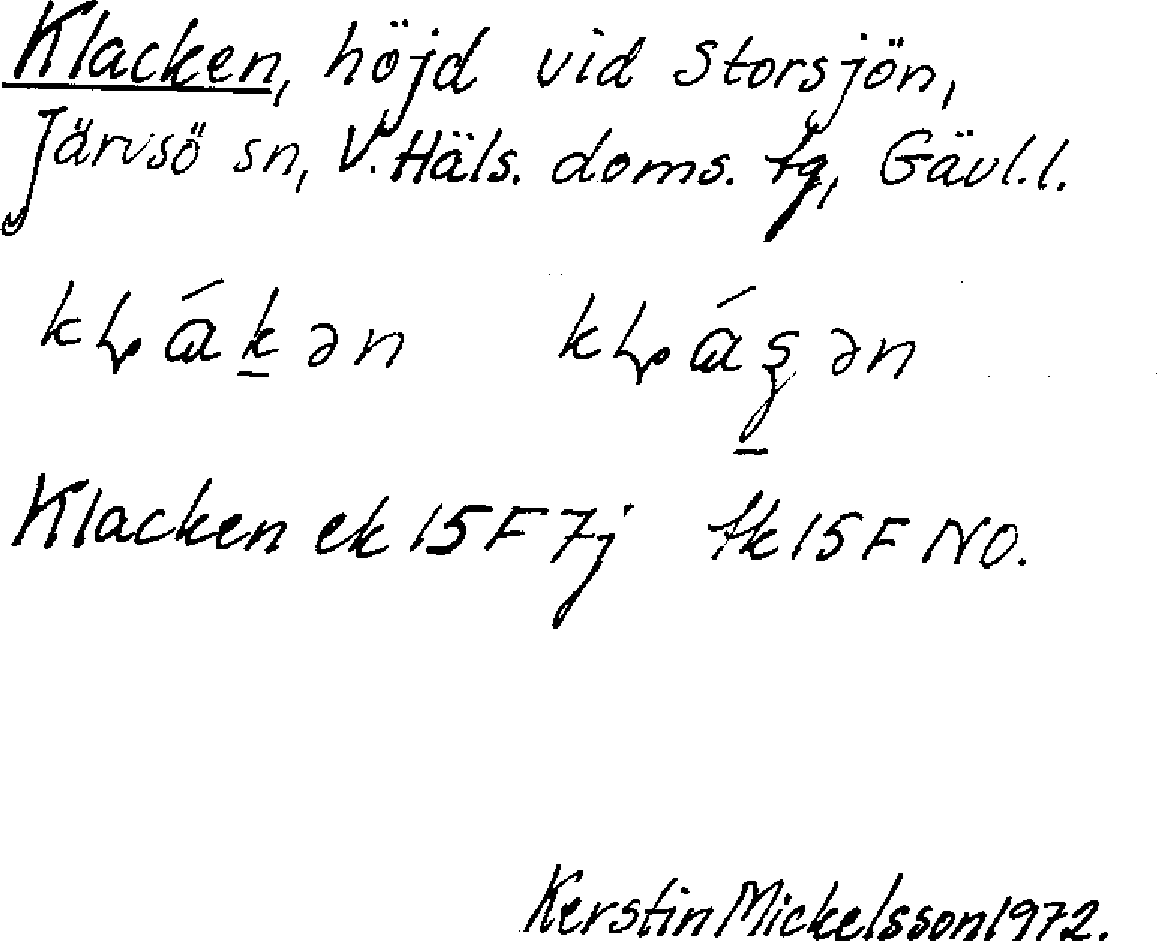 Klacken, höjd vid Storsjön,
Järvsö sn, V. Häls. doms. tg, Gävl.l.
Klacken ek 15F 7j tk 15F NO.
Kerstin Mickelsson 1972.